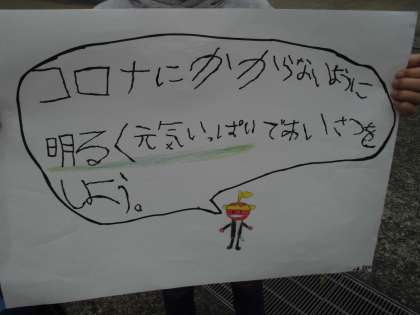 コロナにかからないように
明るく元気いっぱいであいさつを
しよう。